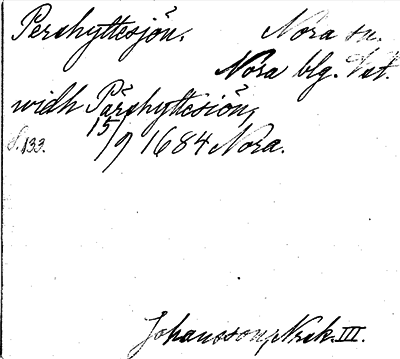 Pershyttesjön. Nora sn.
Nora blg. Vst.
widh Pärshyttesiön,
S. 133. 15/9 1684 Nora.
Johansson, Nrsk. III.